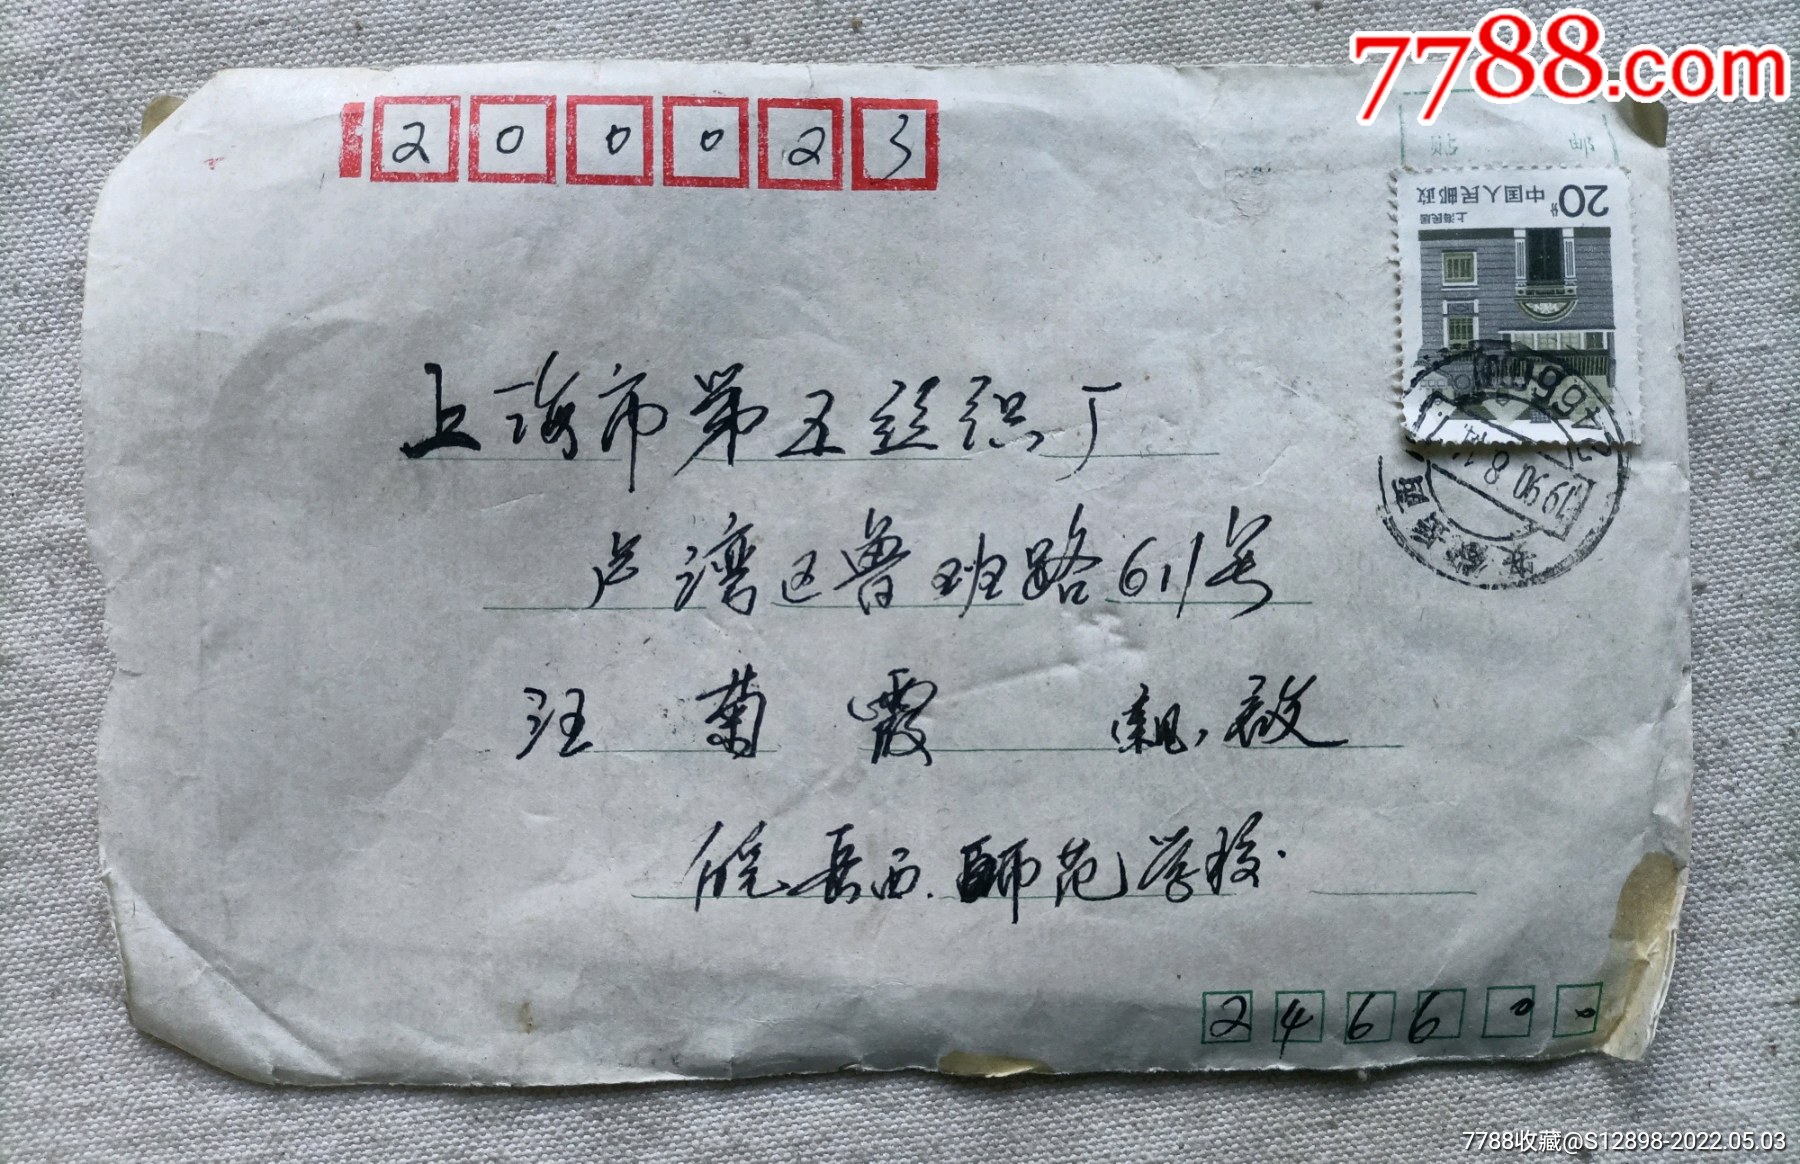 7788.com
200023
贴 邮
20分 中国人民邮政
上海民居
上海市第五丝织厂
卢湾区鲁班路611号
汪菊霞 亲启
皖岳西.师范学校.
246600
246600
1990.8.
安徽岳西
7788收藏@S12898-2022.05.03